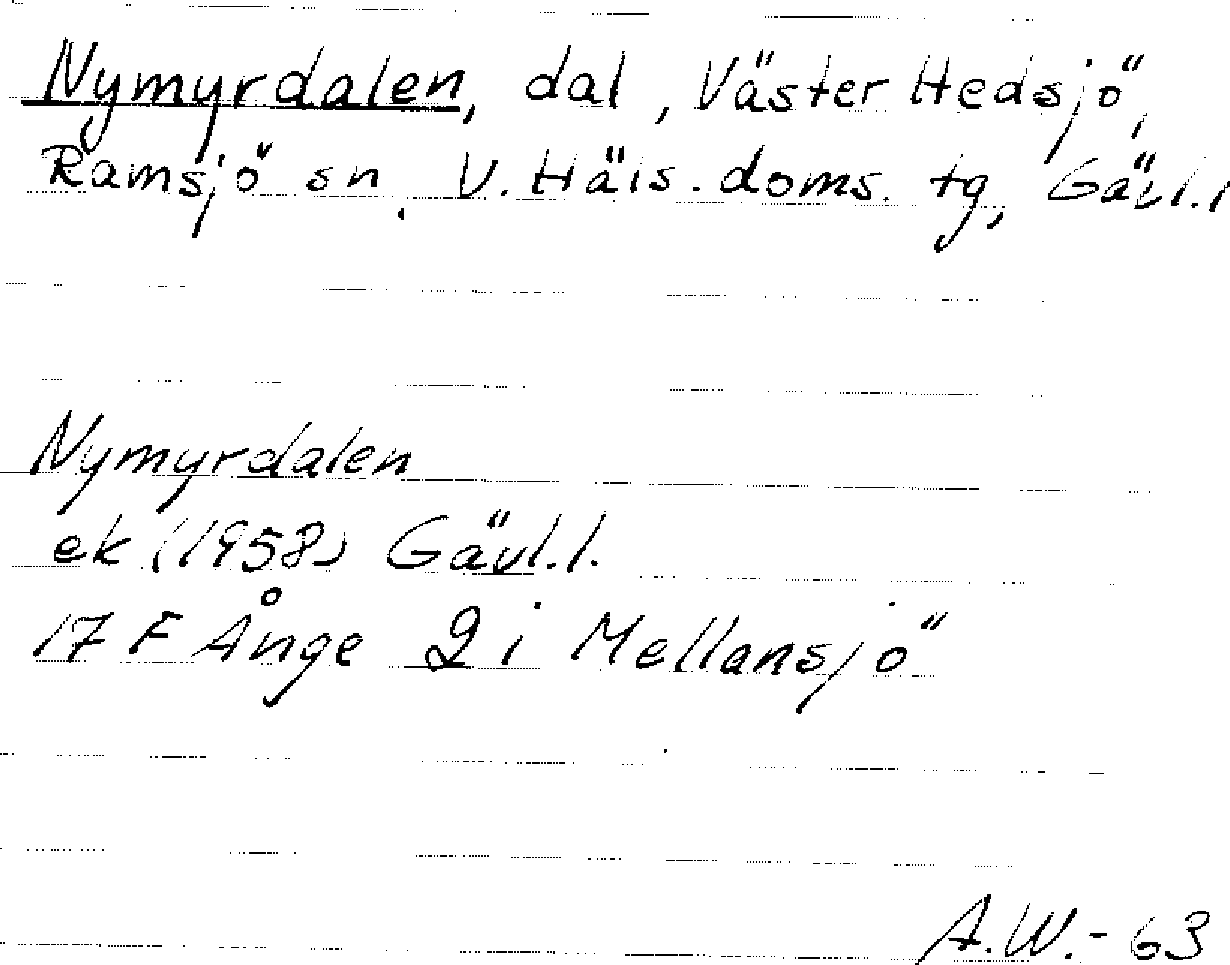 Nymyrdalen, dal, Väster Hedsjö,
Ramsjö sn, V. Häls. doms. tg, Gävl.l
Nymyrdalen
ek (1958) Gävl.l.
17 F Ånge 2 i Mellansjö
A.W.- 63